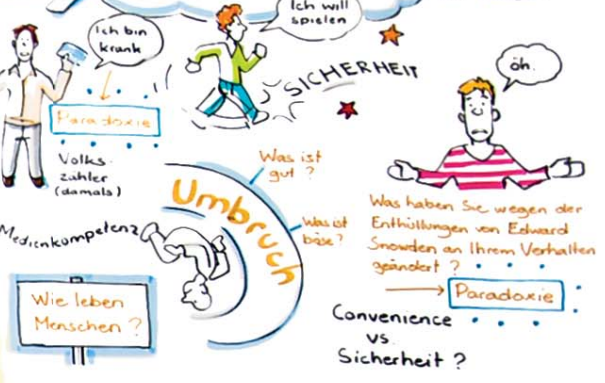 Ich bin
krank
Ich will
spielen
SICHERHEIT
öh.
Paradoxie
Volks-
zähler
(damals)
Was ist
gut ?
Umbruch
Was ist
böse?
Medienkompetenz
Wie leben
Menschen ?
Was haben Sie wegen der
Enthüllungen von Edward
Snowden an Ihrem Verhalten
geändert ?
Paradoxie
Convenience
vs.
Sicherheit ?